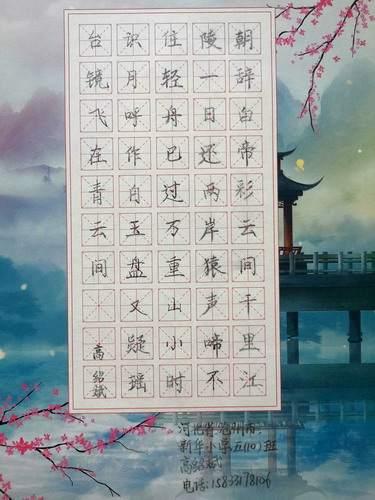 朝辞白帝彩云间千里江
陵一日还两岸猿声啼不
住轻舟已过万重山小时
识月呼作白玉盘又疑瑶
台镜飞在青云间
高绍斌
河北省冀州市
新华小学五(10)班
高绍斌
电话:15833178106